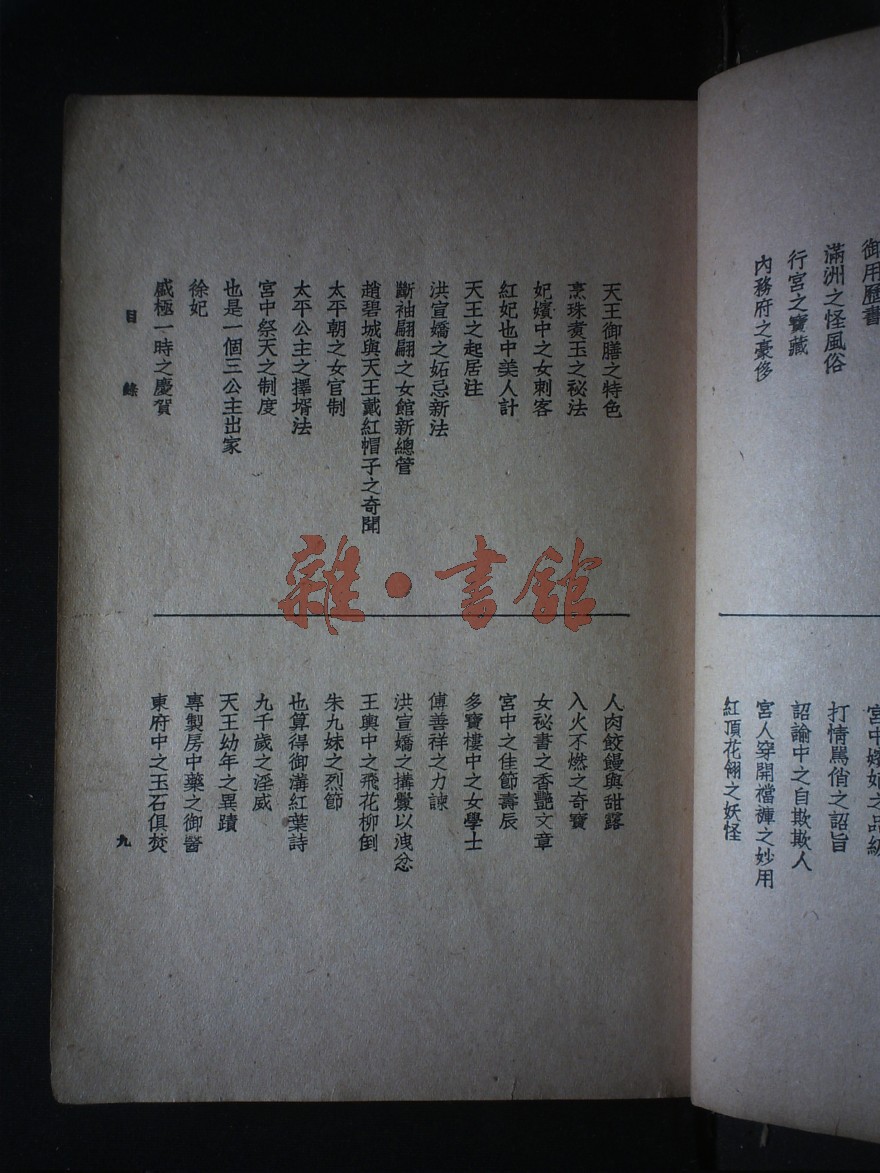 御用曆書
滿洲之怪風俗
行宮之寶藏
內務府之豪侈
宮中嬪妃之品級
打情罵俏之詔旨
詔諭中之自欺欺人
宮人穿開襠褲之妙用
紅頂花翎之妖怪
天王御膳之特色
烹珠煑玉之秘法
妃嬪中之女刺客
紅妃也中美人計
天王之起居注
洪宣嬌之妬忌新法
斷袖翩翩之女館新總管
趙碧城與天王戴紅帽子之奇聞
太平朝之女官制
太平公主之擇壻法
宮中祭天之制度
也是一個三公主出家
徐妃
盛極一時之慶賀
人肉餃饅與甜露
入火不燃之奇寶
女秘書之香艷文章
宮中之佳節壽辰
多寶樓中之女學士
傅善祥之力諫
洪宣嬌之搆釁以洩忿
王輿中之飛花柳倒
朱九妹之烈節
也算得御溝紅葉詩
九千歲之淫威
天王幼年之異蹟
專製房中藥之御醫
東府中之玉石俱焚
目錄
九
雜·書館